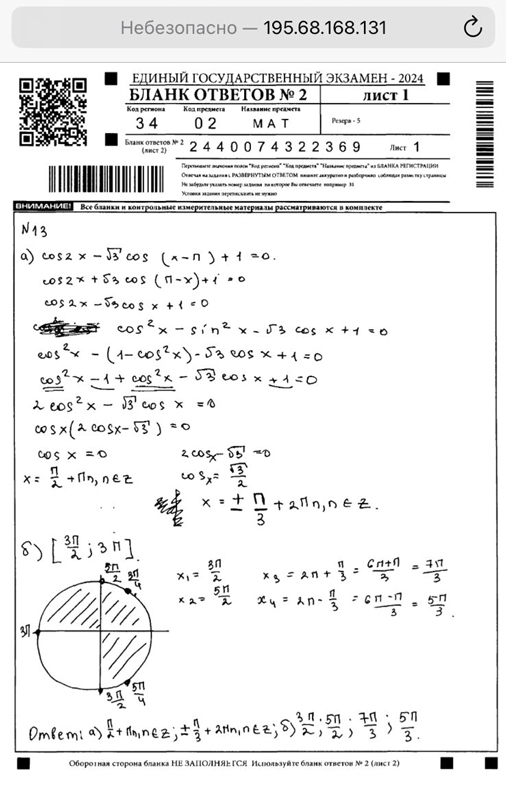 Небезопасно — 195.68.168.131
ЕДИНЫЙ ГОСУДАРСТВЕННЫЙ ЭКЗАМЕН - 2024
БЛАНК ОТВЕТОВ № 2
лист 1
Код региона Код предмета Название предмета
34 02 МАТ
Резерв - 5
Бланк ответов № 2 (лист 2) 2440074322369 Лист 1
Перепишите значения полей "Код региона" "Код предмета" "Название предмета" из БЛАНКА РЕГИСТРАЦИИ
Отвечая на задания с РАЗВЕРНУТЫМ ОТВЕТОМ пишите аккуратно и разборчиво соблюдая разметку страницы
Не забудьте указать номер задания на которое Вы отвечаете например 31
Условия задания переписывать не нужно
ВНИМАНИЕ! Все бланки и контрольные измерительные материалы рассматриваются в комплекте
N 13
а) cos2x - √3 cos (x-π) + 1 = 0.
cos2x + √3 cos (π-x) + 1 = 0
cos2x - √3 cos x + 1 = 0
cos²x - sin²x - √3 cos x + 1 = 0
cos²x - (1-cos²x) - √3 cos x + 1 = 0
cos²x - 1 + cos²x - √3 cos x + 1 = 0
2 cos²x - √3 cos x = 0
cosx (2 cosx - √3) = 0
cos x = 0 2cosx - √3 = 0
x = π/2 + πn, n∈Z cosx = √3/2
x = ± π/3 + 2πn, n∈Z.
б) [3π/2 ; 3π].
5π/2 3π/4
x₁ = 3π/2 x₃ = 2π + π/3 = 6π+π/3 = 7π/3
x₂ = 5π/2 x₄ = 2π - π/3 = 6π-π/3 = 5π/3.
3π
3π/2 5π/4
Ответ: а) π/2 + πn, n∈Z; ± π/3 + 2πn, n∈Z; б) 3π/2; 5π/2; 7π/3; 5π/3.
Оборотная сторона бланка НЕ ЗАПОЛНЯЕТСЯ Используйте бланк ответов № 2 (лист 2)